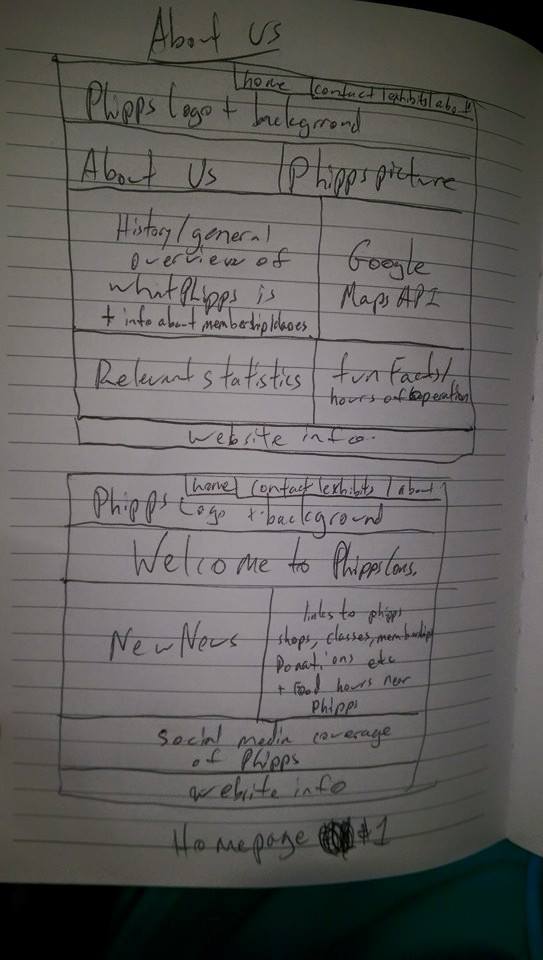 About Us
home contact exhibits about
Phipps logo + background
About Us
Phipps picture
History/general
overview of
what Phipps is
+ info about membership/classes
Google
Maps API
Relevant statistics
fun Facts/
hours of operation
website info.
home contact exhibits about
Phipps Logo + background
Welcome to Phipps Cons.
New News
links to phipps
shops, classes, membership
Donations etc
+ Food hours near
Phipps
social media coverage
of Phipps
website info
Homepage #1